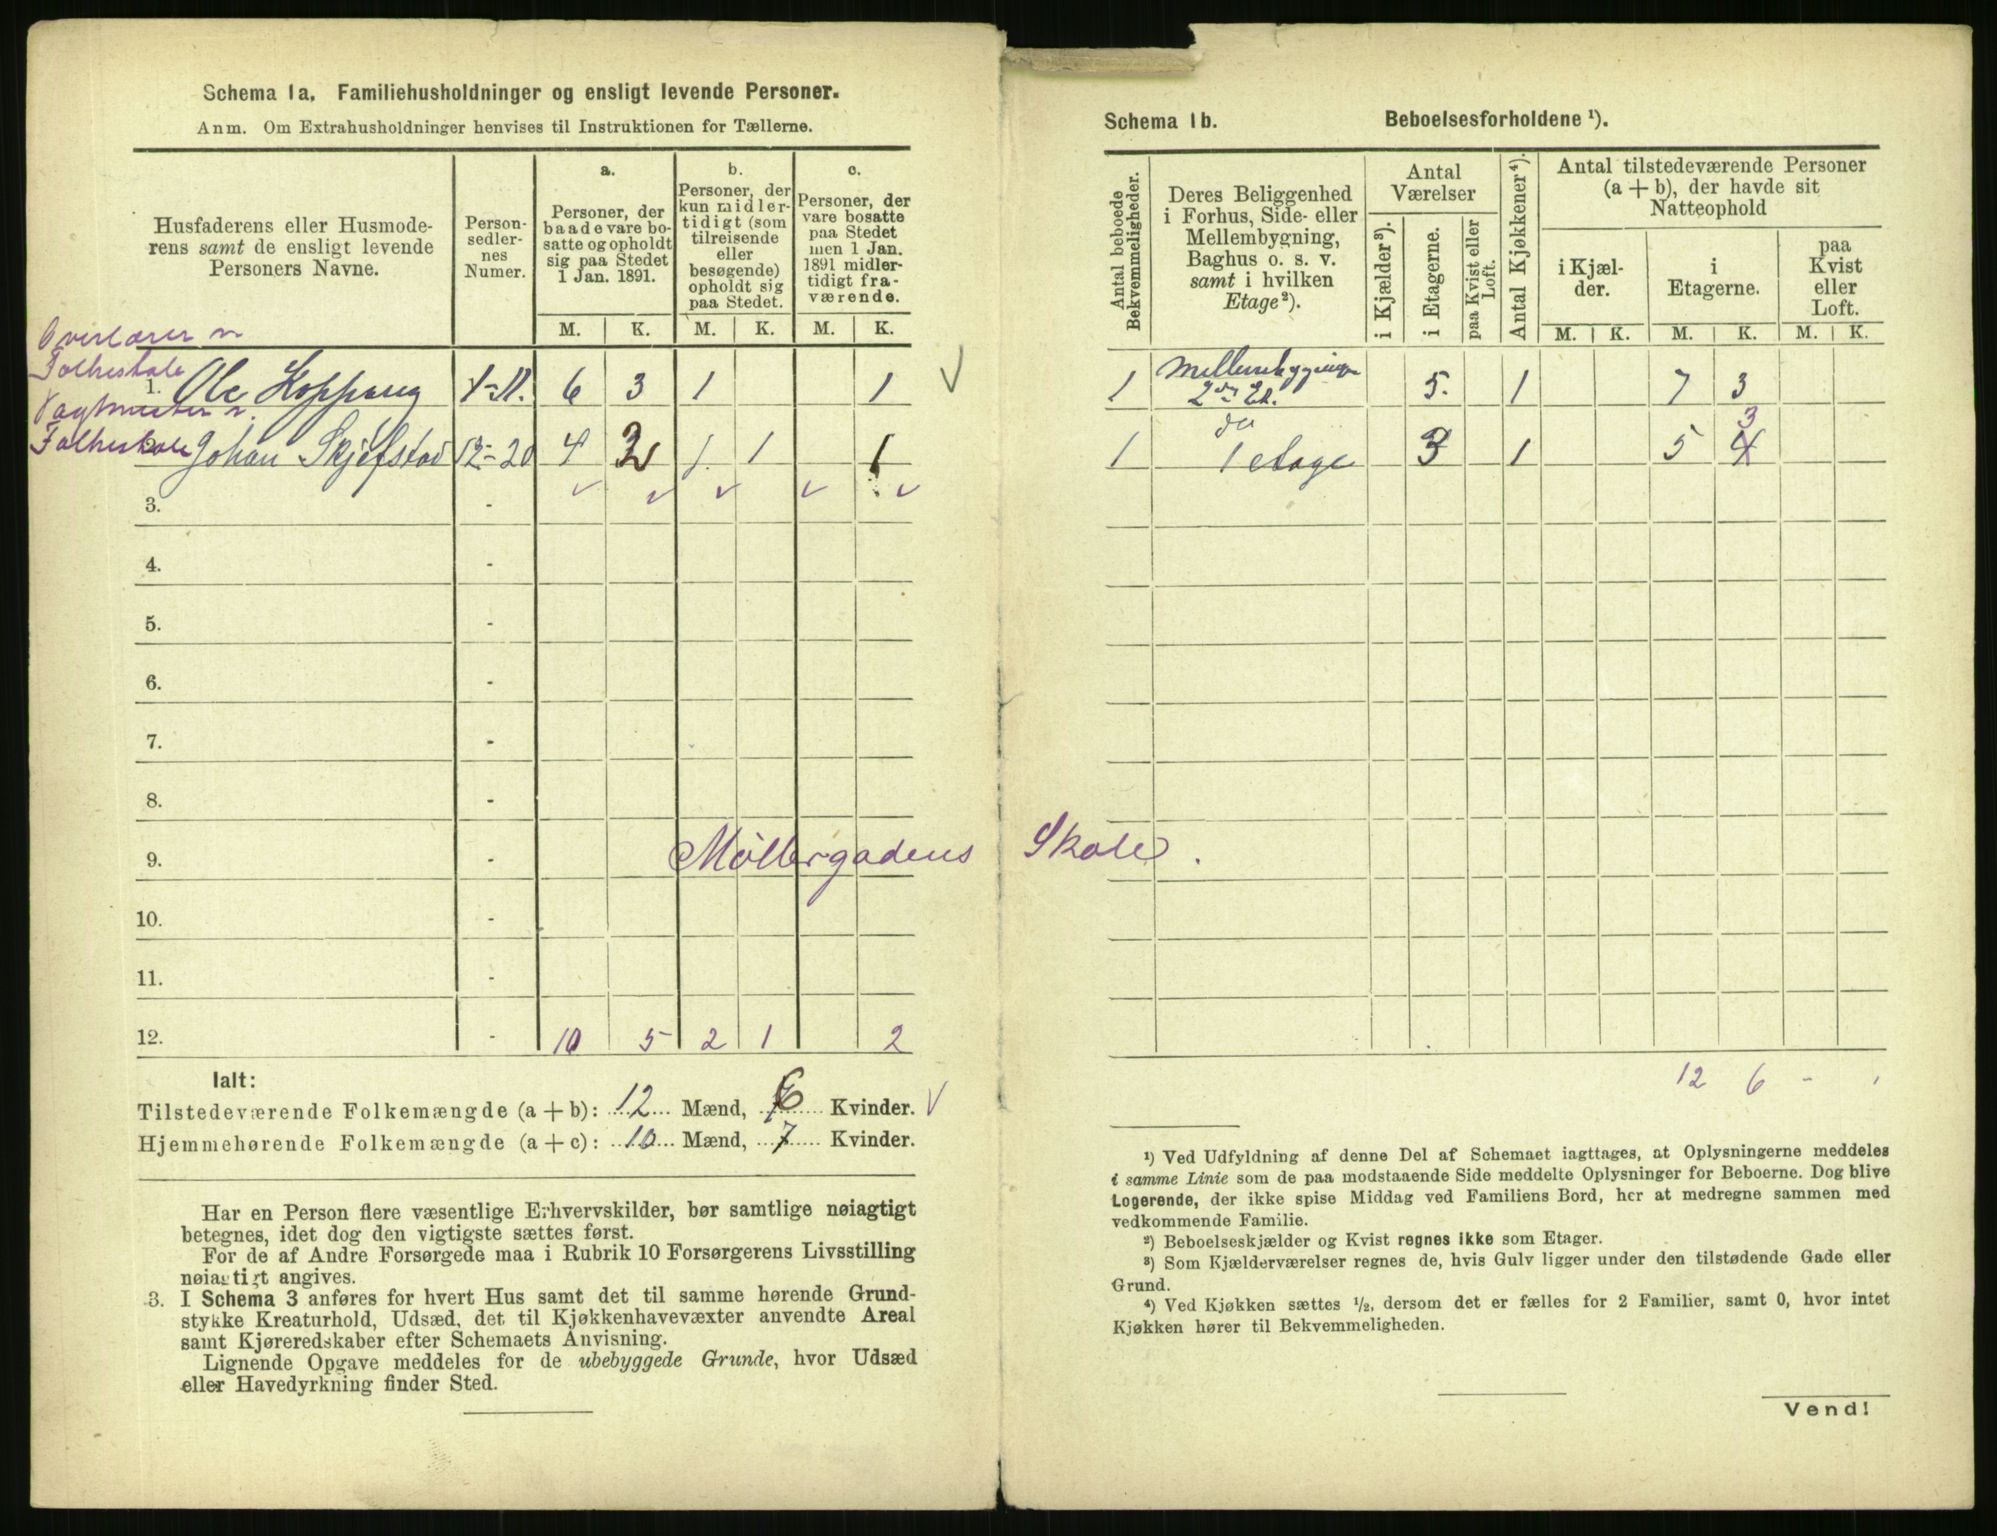 Schema 1a. Familiehusholdninger og ensligt levende Personer.
Anm. Om Extrahusholdninger henvises til Instruktionen for Tællerne.
Husfaderens eller Husmoderens samt de ensligt levende Personers Navne.
Personsedlernes Numer.
a. Personer, der baade vare bosatte og opholdt sig paa Stedet 1 Jan. 1891.
b. Personer, der kun midlertidigt (som tilreisende eller besøgende) opholdt sig paa Stedet.
c. Personer, der vare bosatte paa Stedet men 1 Jan. 1891 midlertidigt fraværende.
M. K. M. K. M. K.
Overlærer v.
Folkeskole
1. Ole Koppang 1-11. 6 3 1 1 √
Vagtmester v.
Folkeskole Johan Skjefstad 12-20 4 2 1 1 1
3. -
4. -
5. -
6. -
7. -
8. -
9. Møllergadens Skole.
10. -
11. -
12. - 10 5 2 1 2
Ialt:
Tilstedeværende Folkemængde (a + b): 12 Mænd, 6 Kvinder. √
Hjemmehørende Folkemængde (a + c): 10 Mænd, 7 Kvinder.
Har en Person flere væsentlige Erhvervskilder, bør samtlige nøiagtigt
betegnes, idet dog den vigtigste sættes først.
For de af Andre Forsørgede maa i Rubrik 10 Forsørgerens Livsstilling
nøiagtigt angives.
3. I Schema 3 anføres for hvert Hus samt det til samme hørende Grund-
stykke Kreaturhold, Udsæd, det til Kjøkkenhavevæxter anvendte Areal
samt Kjøreredskaber efter Schemaets Anvisning.
Lignende Opgave meddeles for de ubebyggede Grunde, hvor Udsæd
eller Havedyrkning finder Sted.
Schema 1b. Beboelsesforholdene ¹).
Antal beboede Bekvemmeligheder.
Deres Beliggenhed i Forhus, Side- eller Mellembygning, Baghus o. s. v. samt i hvilken Etage²).
Antal Værelser
i Kjælder ³).
i Etagerne.
paa Kvist eller Loft.
Antal Kjøkkener ⁴).
Antal tilstedeværende Personer (a + b), der havde sit Natteophold
i Kjælder.
i Etagerne.
paa Kvist eller Loft.
M. K. M. K. M. K.
1 Mellembygning 2den Et. 5. 1 7 3
1 do 1 etage 3 1 5 4 3
12 6 -
¹) Ved Udfyldning af denne Del af Schemaet iagttages, at Oplysningerne meddeles
i samme Linie som de paa modstaaende Side meddelte Oplysninger for Beboerne. Dog blive
Logerende, der ikke spise Middag ved Familiens Bord, her at medregne sammen med
vedkommende Familie.
²) Beboelseskjælder og Kvist regnes ikke som Etager.
³) Som Kjælderværelser regnes de, hvis Gulv ligger under den tilstødende Gade eller
Grund.
⁴) Ved Kjøkken sættes ½, dersom det er fælles for 2 Familier, samt 0, hvor intet
Kjøkken hører til Bekvemmeligheden.
Vend!